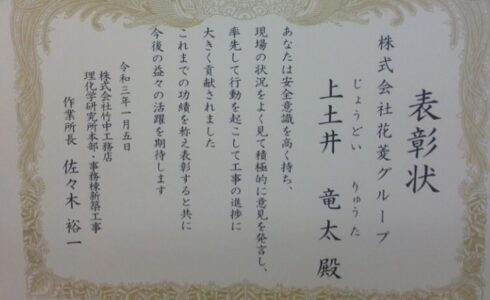 表彰状
株式会社花菱グループ
じょうどい りゅうた
上土井 竜太 殿
あなたは安全意識を高く持ち、
現場の状況をよく見て積極的に意見を発言し、
率先して行動を起こして工事の進捗に
大きく貢献されました
これまでの功績を称え表彰すると共に
今後の益々の活躍を期待します
令和三年一月五日
株式会社竹中工務店
理化学研究所本部・事務棟新築工事
作業所長 佐々木 裕一